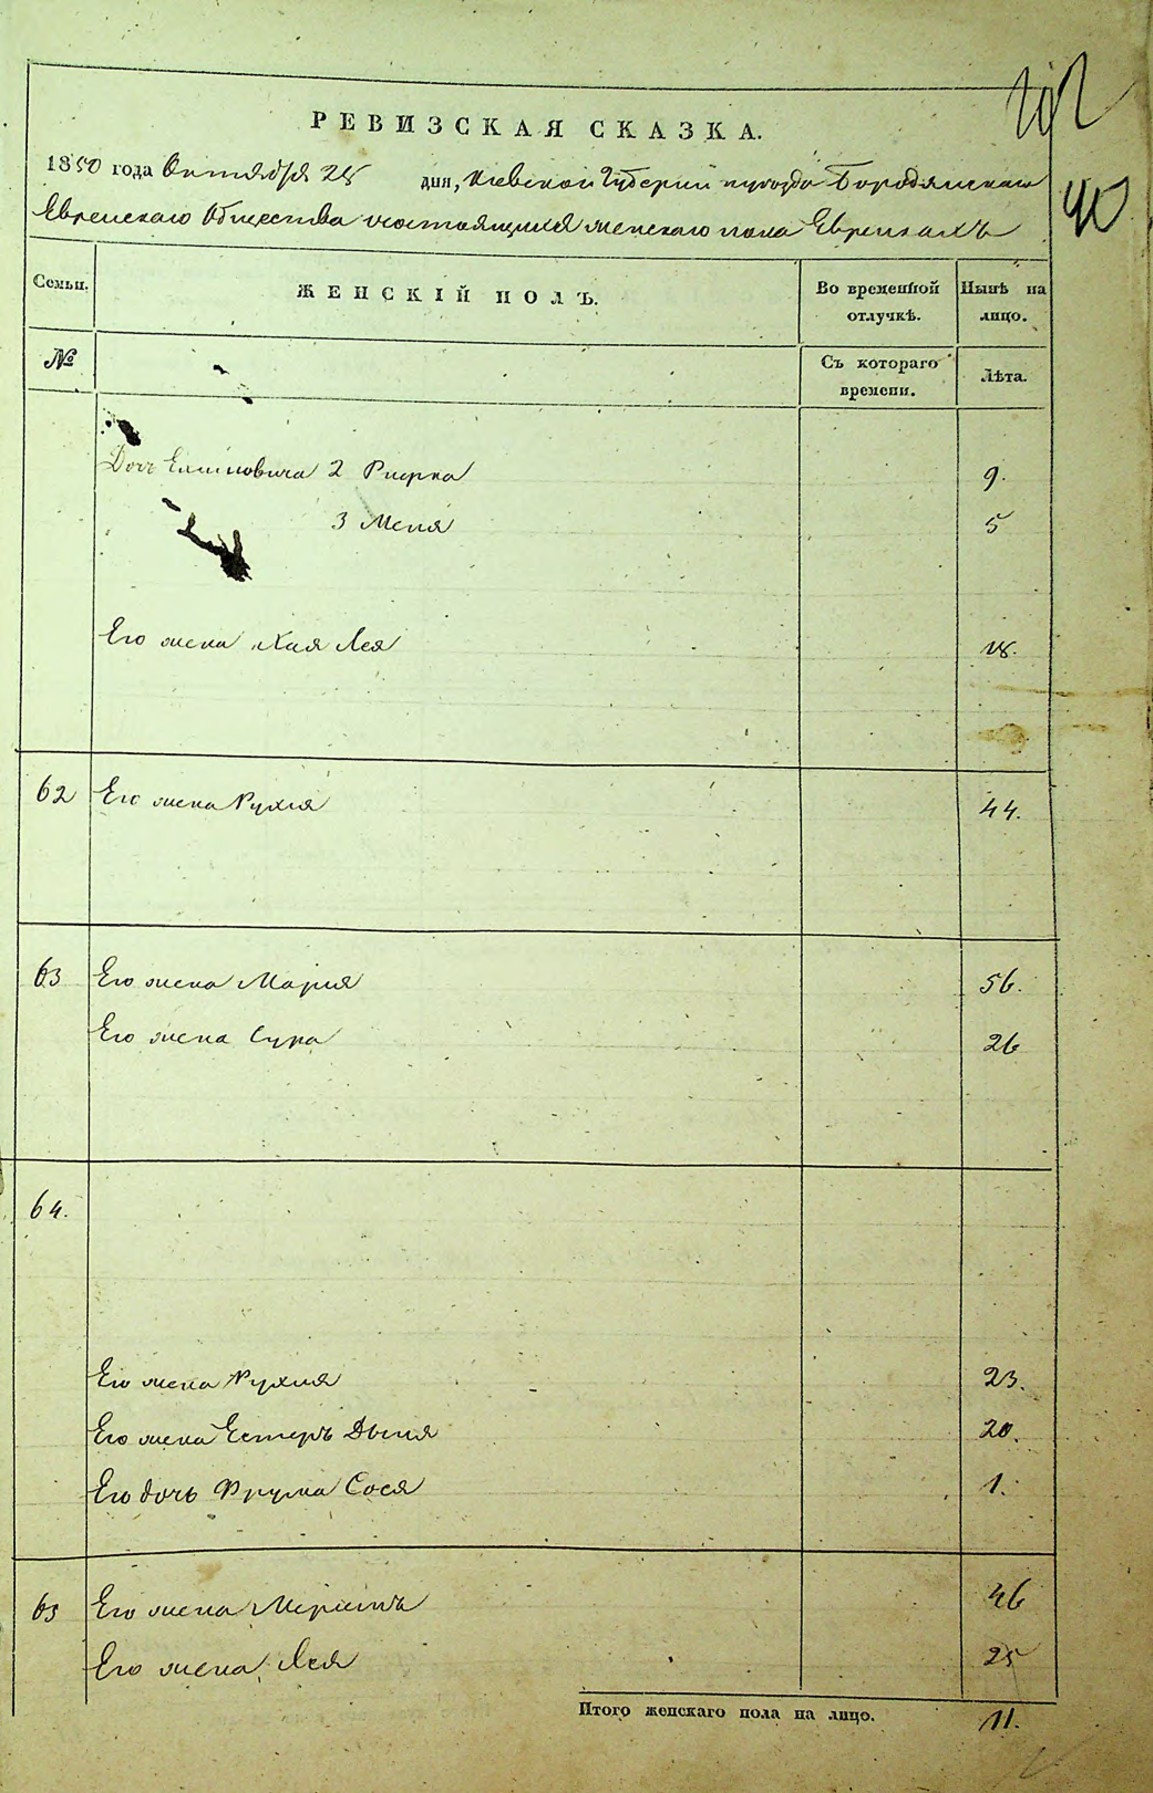 40
РЕВИЗСКАЯ СКАЗКА.
1850 года Октября 25 дня, Киевской Губернии и уѣзда Бородянскаго
Еврейскаго Общества о состоящихъ женскаго пола Евреикахъ
Семьи. ЖЕНСКІЙ ПОЛЪ. Во временной отлучкѣ. Нынѣ на лицо.
№ Съ котораго времени. Лѣта.
Дочь 2 Рифка 9.
3 Меня 5
Его жена Хая Лея 18.
62 Его жена Рухля 44.
63 Его жена Марія 56.
Его жена Сура 26
64.
Его жена Рухля 23.
Его жена Естеръ Двися 20.
Его дочь Фрума Сося 1.
65 Его жена Меріемъ 46
Его жена Лея 25
Итого женскаго пола на лицо. 11.